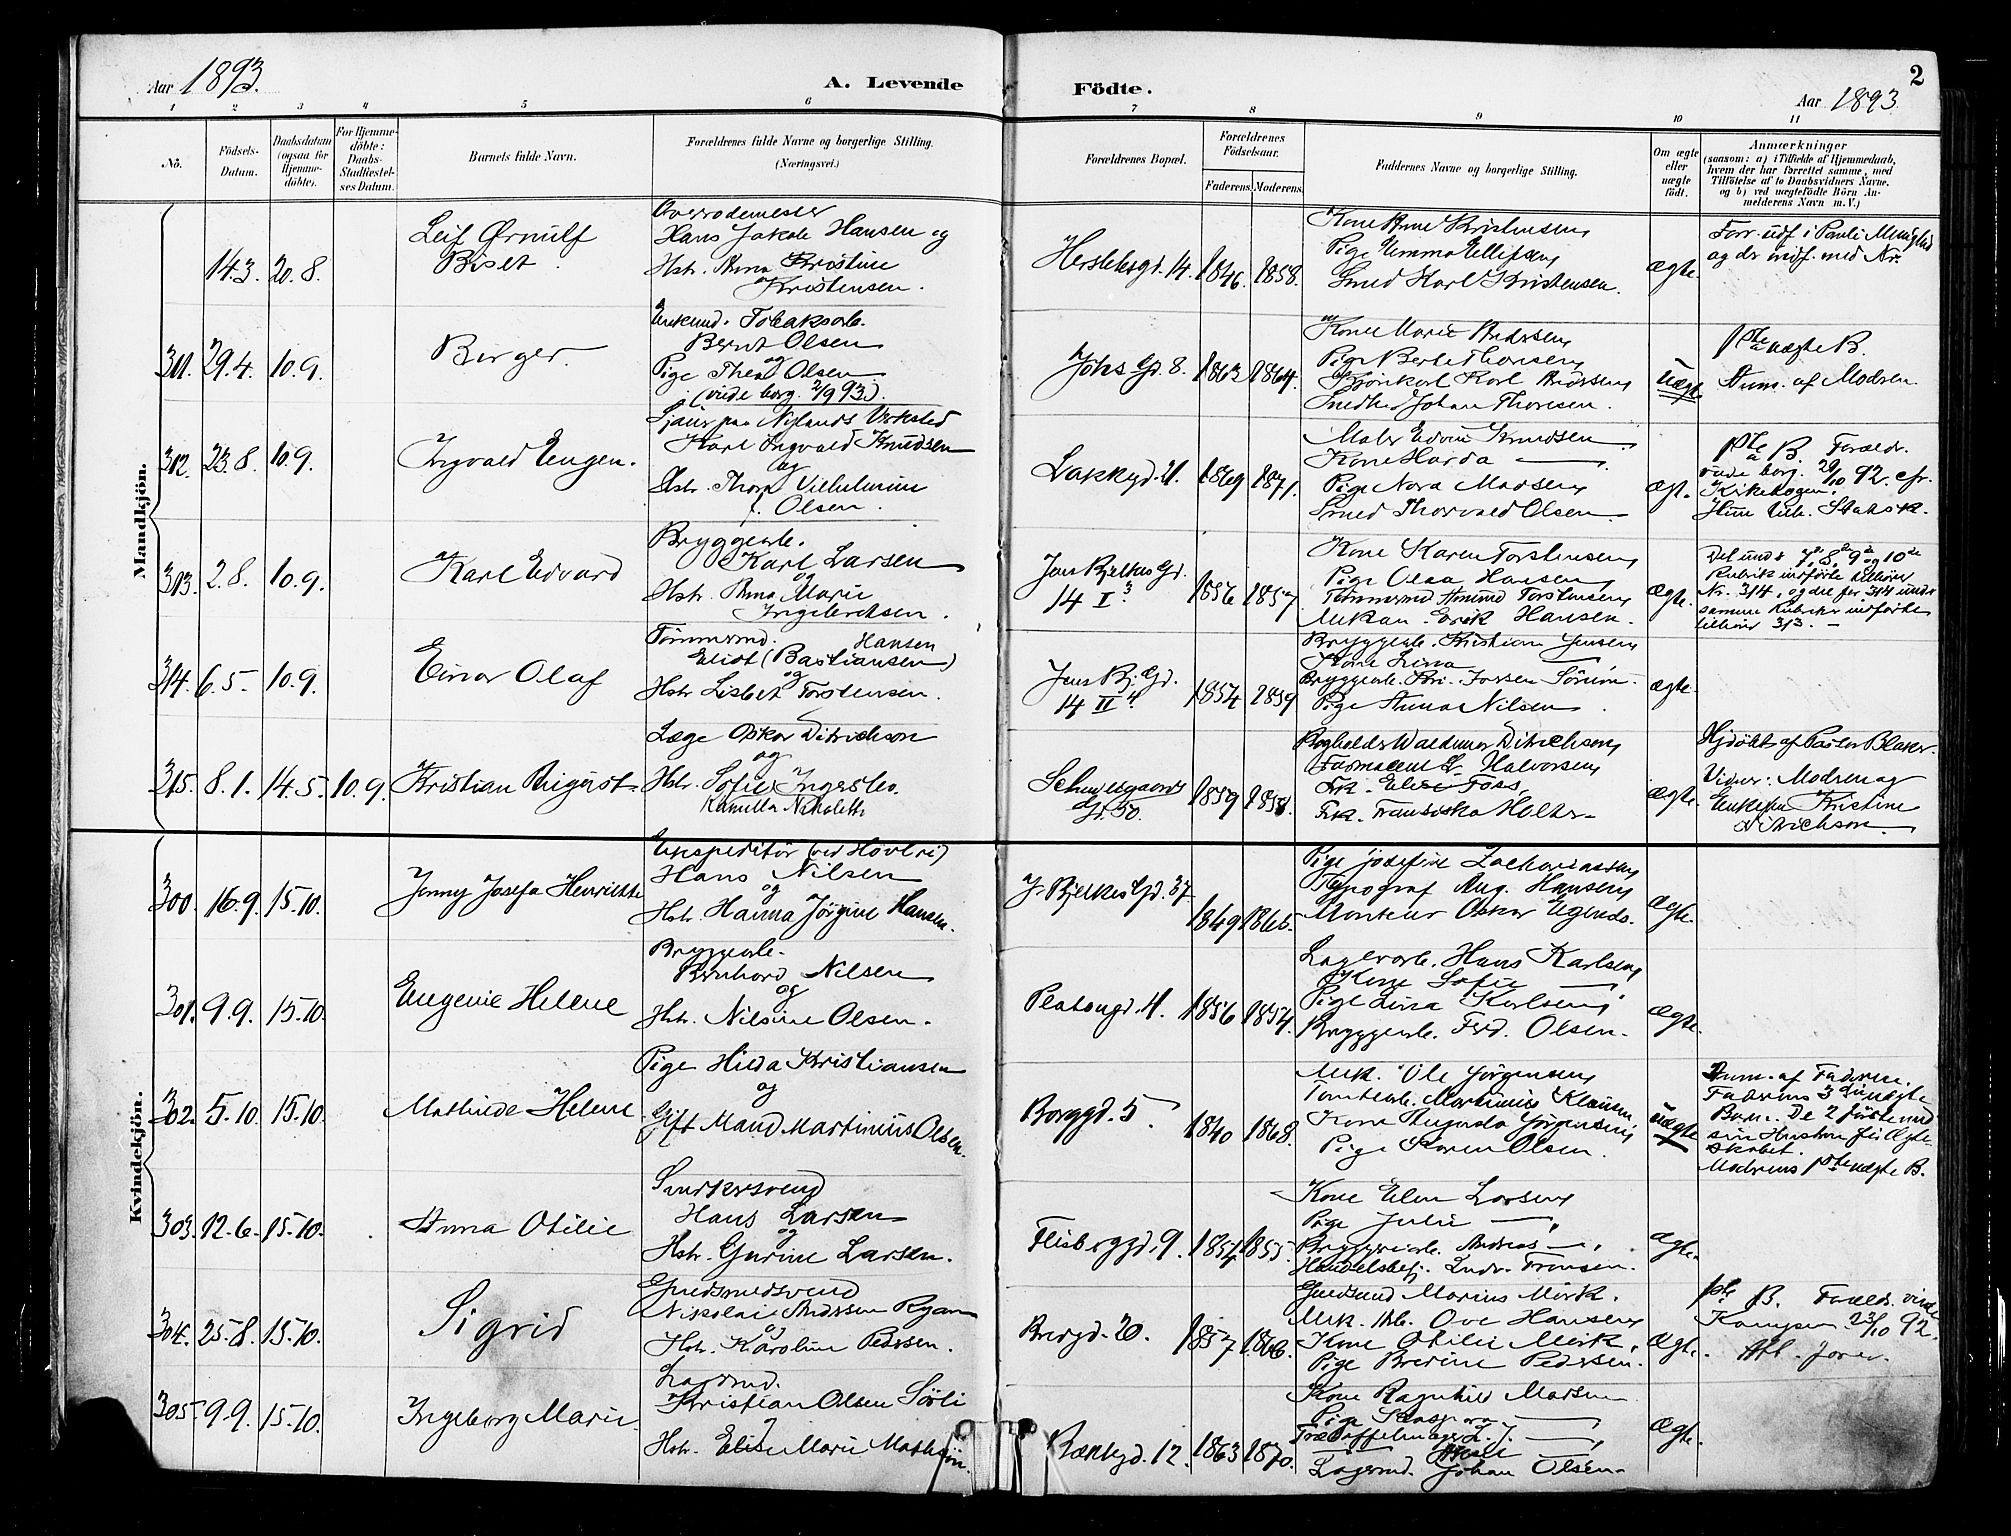 Aar 1893.
A. Levende
Födte.
2
Aar 1893
1 2 3 4 5 6 7 8 9 10 11
Nö.
Födsels-
Datum.
Daabsdatum
(ogsaa for
Hjemme-
döbte).
For Hjemme-
döbte:
Daabs-
Stadfæstel-
ses Datum.
Barnets fulde Navn.
Forældrenes fulde Navne og borgerlige Stilling.
(Næringsvei.)
Forældrenes Bopæl.
Forældrenes
Födselsaar.
Faderens. Moderens.
Faddernes Navne og borgerlige Stilling.
Om ægte
eller
uægte
födt.
Anmærkninger
(saasom: a) i Tilfælde af Hjemmedaab,
hvem der har forrettet samme, med
Tilföielse af to Daabsvidners Navne.
og b) ved uægtefödte Börn An-
melderens Navn m. V.)
Mandkjön.
14.3. 20.8.
Leif Ørnulf
Overrodemester
Hans Jakob Hansen og
Hstr. Anna Kristine
Kristensen.
Herslebsgd. 14.
1846. 1858.
Kone Anne Kristensen
Pige Emma Ellefsen
Smed Karl Kristensen.
ægte.
Forr. udf. i Pauli Menighed
og der indf. med Nr.
311. 29.4. 10.9.
Birger.
Enkemd. Tobaksarb.
Bernt Olsen
og
Pige Thea Olsen
(vide borg. 2/9 93).
Johs Gd. 8.
1863 1864.
Kone Marie Andersen
Pige Berte Thoresen
Karl Andersen
Johan Thoresen.
uægte
1ste uægte B.
Anm. af Modren.
312. 23.8. 10.9.
Ingvald Eugen.
Sjauer paa Nylands Verksted
Karl Ingvald Knudsen
og
Hstr. Thora Vilhelmine
f. Olsen.
Lakkegd. 21.
1869 1871.
Maler Edvin Knudsen
Kone Harda —
Pige Nora Madsen
Smed Thorvald Olsen
ægt.
1ste B. Foræld.
vide borg. 29/10 92. cfr.
Kirkebogen.
313. 2.8. 10.9.
Karl Edvard
Bryggearb.
Karl Larsen
og
Hstr. Anna Marie
Ingebretsen.
Jens Bjelkes Gd.
14 I 3
1856 1857
Kone Karen Torstensen
Pige Olga Hansen
Tömmermd Amund Torstensen
Mekan. Erik Hansen.
ægte.
Det under 7de, 8de, 9de og 10de
Rubrik indförte tilhörer
Nr. 314, og det for 314 under
samme Rubriker indförte
tilhörer 313. —
314. 6.5. 10.9.
Einar Olaf
Tömmermd. Hansen
Eliot (Bastiansen)
og
Hstr. Lisbet Torstensen.
Jens Bj. Gd.
14 II 4.
1854 1859
Bryggearb. Kristian Jensen
Kone Lina —
Pige Anna Nilsen.
ægte.
315. 8.1. 14.5. 10.9.
Kristian August
Læge Oskar Ditrichson
og
Hstr. Sofie Ingerslev.
Kamilla Nikolette
Schweigaards
Gt. 50.
1859 1858.
Bogholder Waldemar Ditrichson
Farmaceut L. Halvorsen
Frk. Elise Foss,
Frk. Fransiska Holter
ægte.
Hjdöbt af Pastor Blaker.
Vidner: Modren og
Enkefru Kristine
Ditrichson.
Kvindekjön.
300. 16.9. 15.10.
Jenny Josefa Henriette
Expeditör (ved Hövleri)
Hans Nilsen
og
Hstr. Hanna Jörgine Hansen.
J. Bjelkes Gd. 37
1849 1865.
Pige Josefine Zachariassen
Typograf Aug. Hansen
Monteur Oskar
ægte.
301. 9.9. 15.10.
Eugenie Helene
Bryggearb.
Bernhard Nilsen
og
Hstr. Nilsine Olsen.
Platougd. 41.
1856 1854.
Lagerarb. Hans Karlsen
Kone Sofie —
Pige Lina Karlsen
Bryggearb. Ferd. Olsen.
ægte.
302. 5.10. 15.10.
Mathilde Helene
Pige Hilda Kristiansen
og
Gift Mand Martinius Olsen.
Borggd. 5
1840 1868.
Mek. Ole Jörgensen
Tomtearb. Martinius Klausen
Kone Theganda Jörgensen
Pige Karen Olsen.
uægte
Anm. af Faderen.
Faderens 3die uægte
Barn. De 2 förste med
sin Hustru för Ægte-
skabet.
Modrens 1ste uægte B.
303. 12.6. 15.10.
Anna Otilie
Snekkersvend
Hans Larsen
og
Hstr. Gurine Larsen.
Flisberggd. 9.
1854 1855.
Kone Elen Larsen
Pige Julie —
Bryggeriarb. Andreas —
Handelsbetj. Ludv. Fransen.
ægte.
304. 25.8. 15.10.
Sigrid
Gjuldsmedsvend
Nikolai Andersen Ryan
og
Hstr. Karoline Pedersen.
Bredgd. 20.
1857 1866.
Marius Mörk.
Mek. Arb. Ove Hansen
Kone Otilie Mörk,
Pige Bredine Pedersen.
ægte.
1ste B. Foræld. viede
23/10 92.
305. 9.9. 15.10.
Ingeborg Marie
Kristian Olsen Sörli
og
Hstr. Elise Marie
Rækkegd. 12.
1863 1870.
Kone Ragnhild Madsen
Pige —
Lagermd. Johan Olsen
ægte.